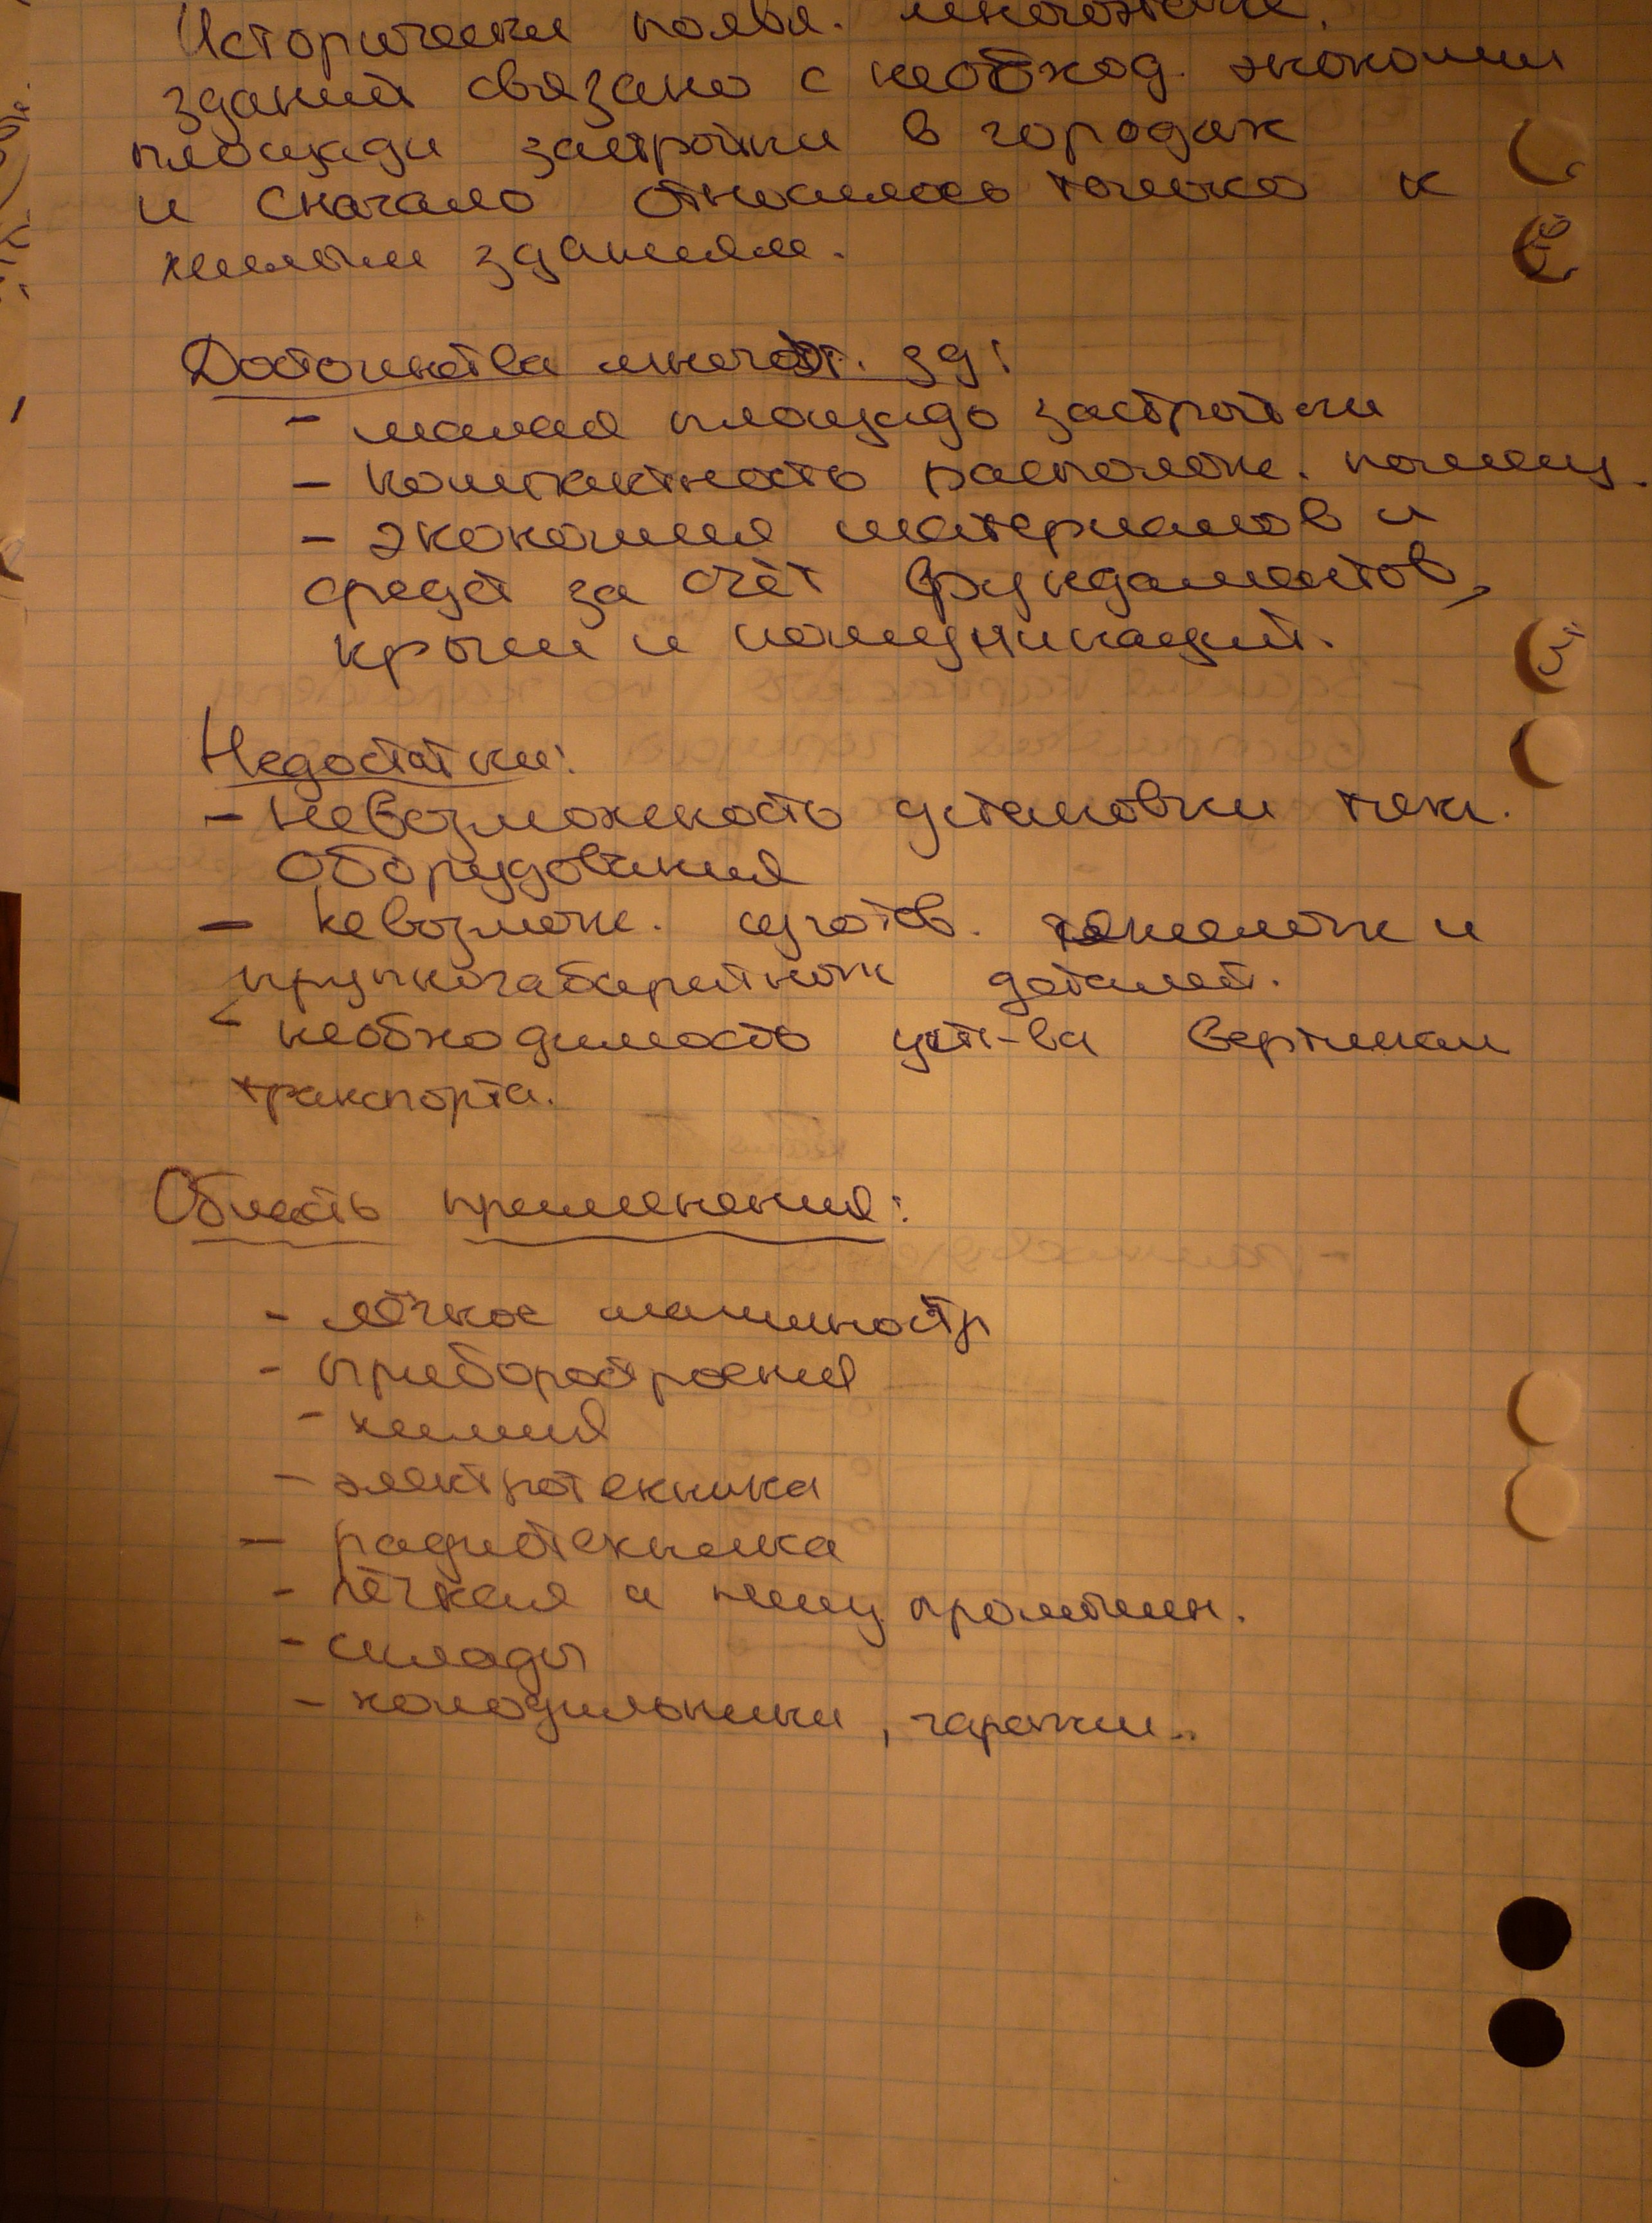 Исторически появл. многоэтаж.
зданий связано с необход. экономии
площади застройки в городах
и сначало относилось только к
жилым зданиям.
Достоинства многоэт. зд:
- малая площадь застройки
- компактность располож. помещ.
- экономия материалов и
средст за счёт фундаментов,
крыши и коммуникаций.
Недостатки:
- невозможность установки тяж.
оборудования
- невозмож. изготов. тяжелых и
крупногабаритных деталей.
- необходимость уст-ва вертикал
транспорта.
Область применения:
- лёгкое машиностр
- приборостроения
- химия
- электротехника
- радиотехника
- лёгкая и пищ промышл.
- склады
- холодильники, гаражи..